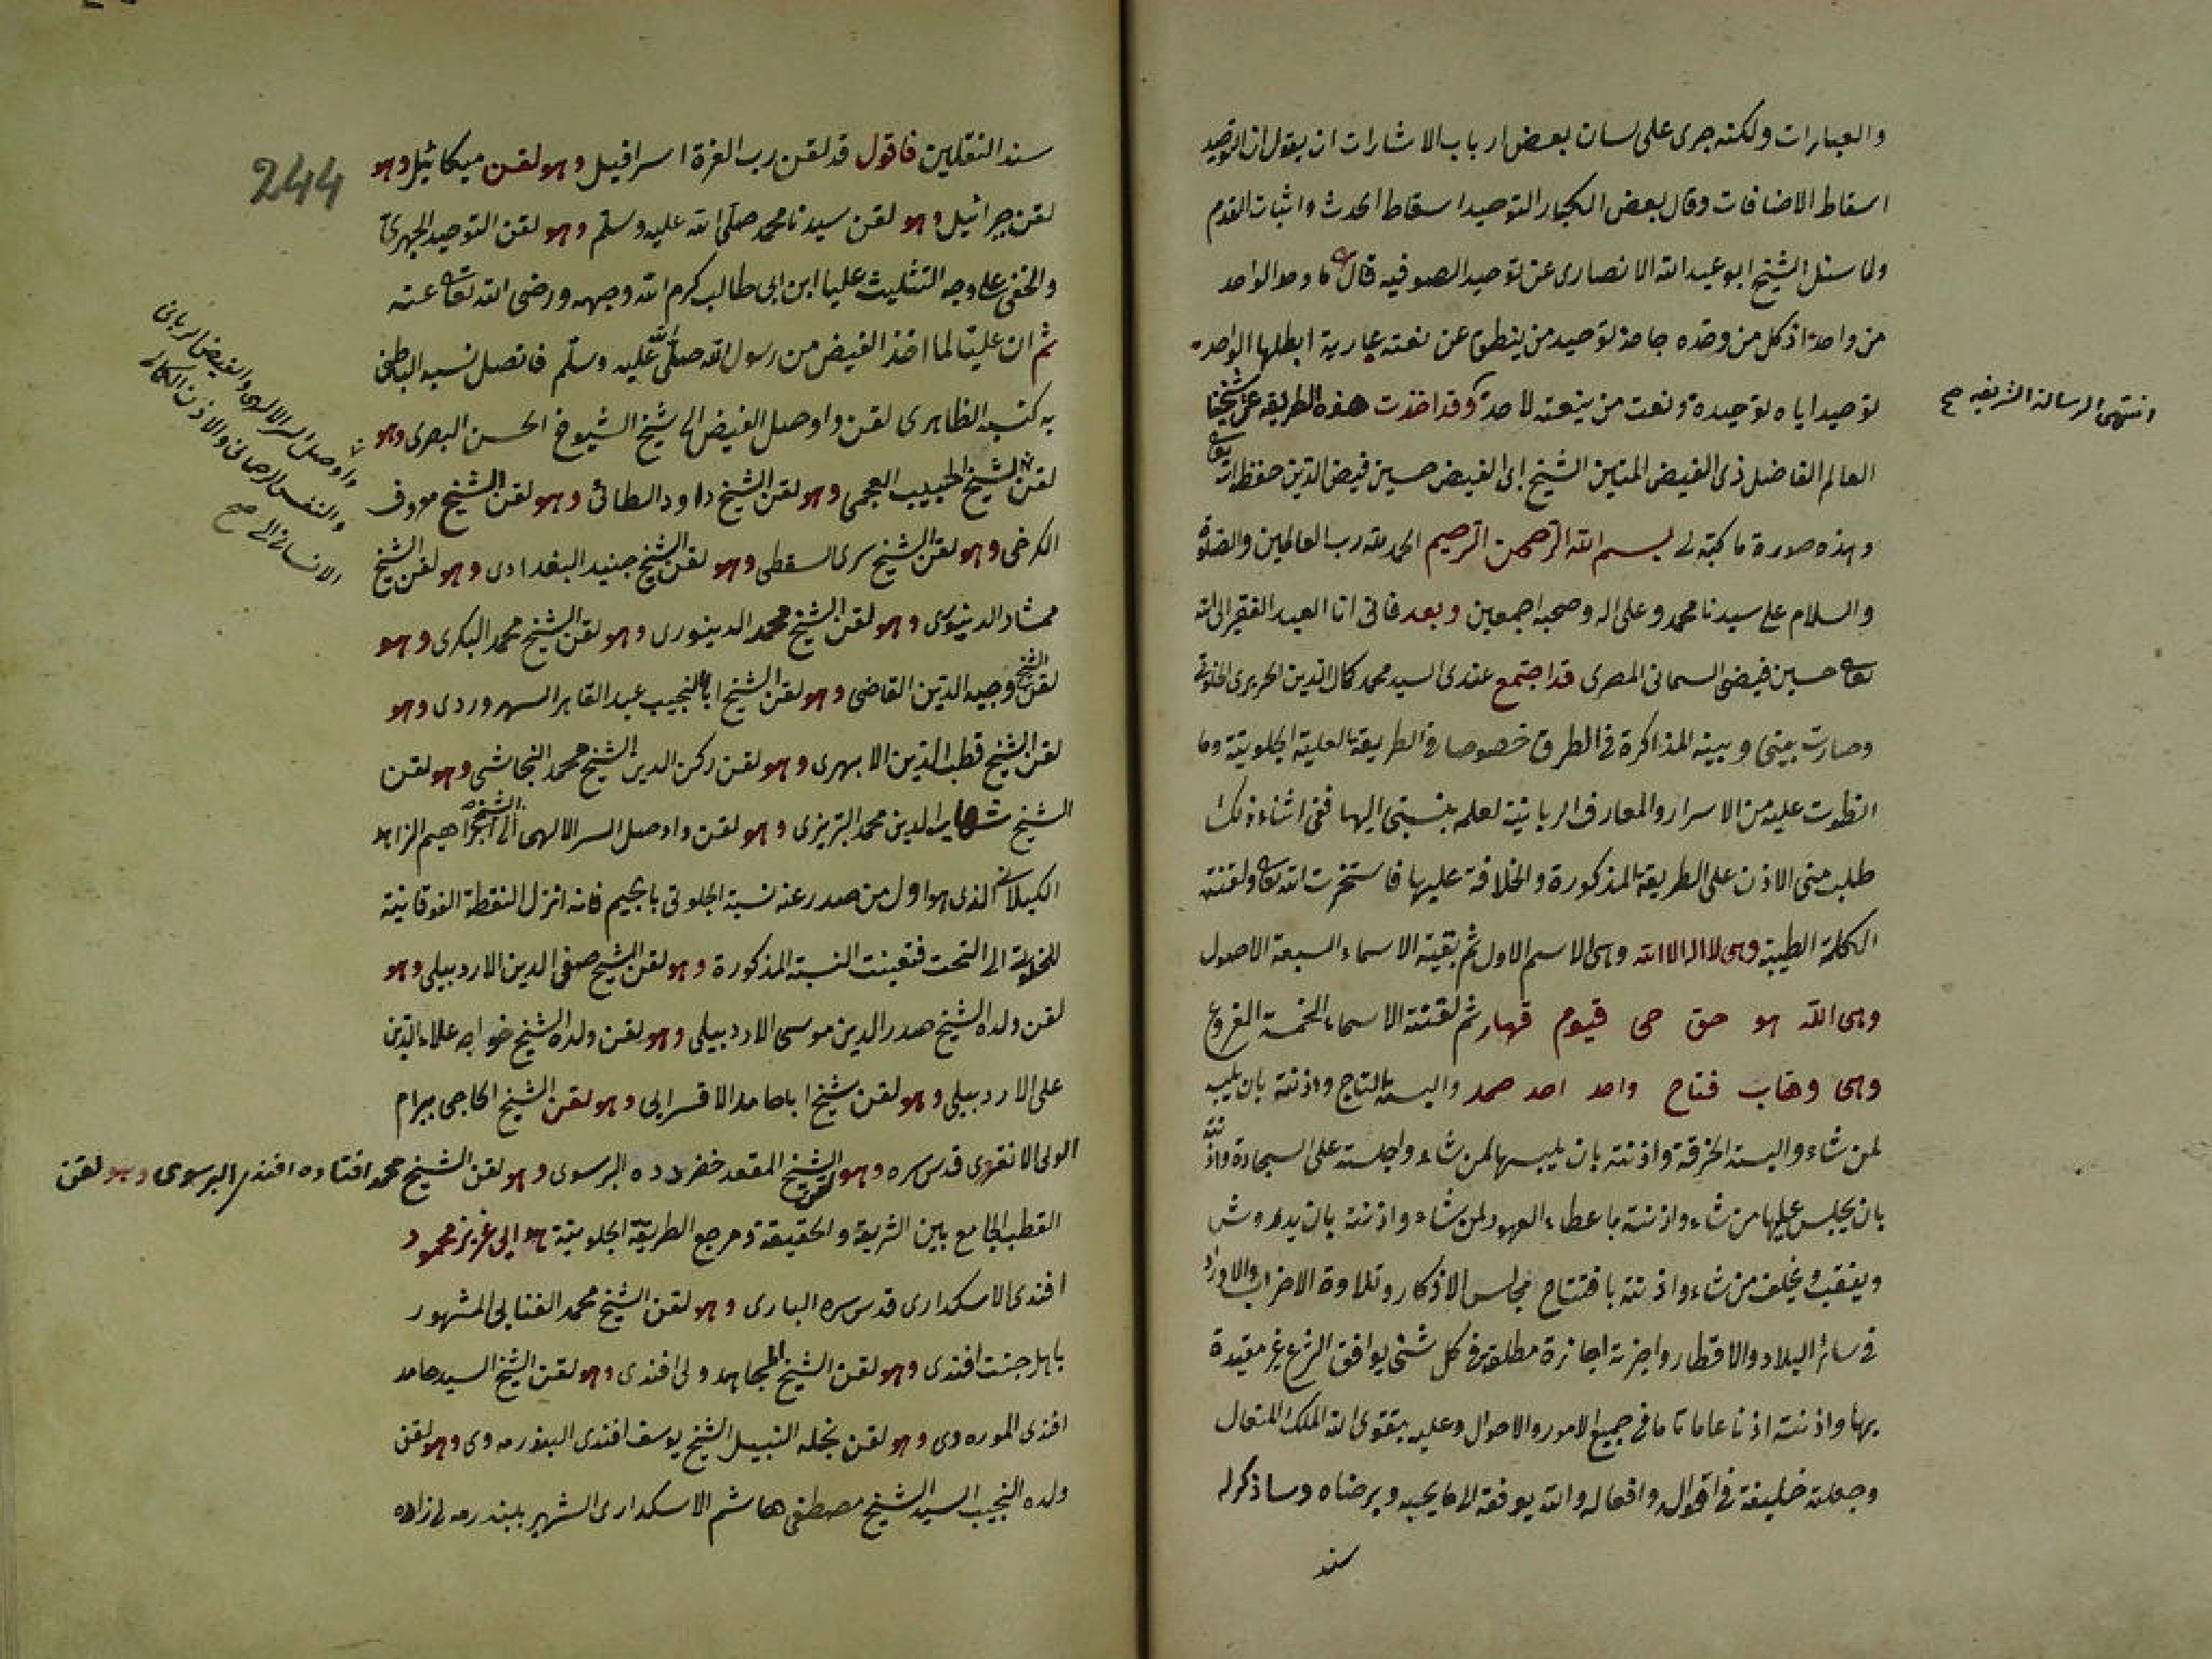 والعبارات ولكنه جرى على لسان بعض ارباب الاشارات ان يقول ان التوحيد
اسقاط الاضافات وقال بعض الكبار التوحيد اسقاط الحدث واثبات القدم
ولما سئل الشيخ ابو عبد الله الانصارى عن توحيد الصوفيه قال ما وحد الواحد
من واحد اذ كل من وحده جاحد توحيد من ينطق عن نعته عارية ابطلها الواحد
توحيد اياه توحيده ونعت من ينعته لاحد وقد اخذت هذه الطريقه عن شيخنا
انتهى الرسالة الشريفه صح
العالم الفاضل ذى الفيض المتين الشيخ ابى الفيض حسين فيض الدين حفظه الله تعالى
وهذه صورة ما كتبه لى بسم الله الرحمن الرحيم الحمد لله رب العالمين والصلوة
والسلام على سيدنا محمد وعلى اله وصحبه اجمعين وبعد فانى انا العبد الفقير الى الله
تعالى حسين فيضى السمانى المصرى قد اجتمع عندى السيد محمد كمال الدين الحريرى الخلوتى
وصارت بينى وبينه المذاكرة فى الطرق خصوصا فى الطريقة العلية الجلوتية وما
انطوت عليه من الاسرار والمعارف الربانية لعلمه بنسبتى اليها ففى اثناء ذلك
طلب منى الاذن على الطريقة المذكورة والخلافة عليها فاستخرت الله تعالى ولقنته
الكلمة الطيبة وهى لا اله الا الله وهى الاسم الاول ثم بقية الاسماء السبعة الاصول
وهى الله هو حق حى قيوم قهار ثم لقنته الاسماء الخمسة الفروع
وهى وهاب فتاح واحد احد صمد والبسته التاج واذنته بان يلبسه
لمن شاء والبسته الخرقة واذنته بان يلبسها لمن شاء واجلسته على السجادة واذنته
بان يجلس عليها من شاء واذنته باعطاء العهود لمن شاء واذنته بان يدروش
وينقب ويخلف من شاء واذنته بافتتاح مجالس الاذكار وتلاوة الاحزاب والاوراد
فى سائر البلاد والاقطار واجزته اجازة مطلقة فى كل شئ يوافق الشرع غير مقيدة
بها واذنته اذنا عاما تاما فى جميع الامور والاحوال وعليه بتقوى الله الملك المتعال
وجعلته خليفة فى اقواله وافعاله والله يوفقه لما يحبه ويرضاه وساذكر له
سند
244
سند التلقين فاقول قد لقن رب العزة اسرافيل وهو لقن ميكائيل وهو
لقن جبرائيل وهو لقن سيدنا محمد صلى الله عليه وسلم وهو لقن التوحيد الجهرى
والخفى على وجه التثليث عليا ابن ابى طالب كرم الله وجهه ورضى الله تعالى عنه
ثم ان عليا لما اخذ الفيض من رسول الله صلى الله عليه وسلم فاتصل نسبه الباطنى
به كنسبه الظاهرى لقن واوصل الفيض الى شيخ الشيوخ الحسن البصرى وهو
واوصل السر الالهى والفيض الربانى
والنفس الرحمانى والاذن الكامل
الانسانى الى صح
لقن الشيخ الحبيب العجمى وهو لقن الشيخ داود الطائى وهو لقن الشيخ معروف
الكرخى وهو لقن الشيخ سرى السقطى وهو لقن الشيخ جنيد البغدادى وهو لقن الشيخ
ممشاد الدينورى وهو لقن الشيخ محمد الدينورى وهو لقن الشيخ محمد البكرى وهو
لقن الشيخ وجيه الدين القاضى وهو لقن الشيخ ابا النجيب عبد القاهر السهروردى وهو
لقن الشيخ قطب الدين الابهرى وهو لقن ركن الدين الشيخ محمد النجاشى وهو لقن
الشيخ شهاب الدين محمد التبريزى وهو لقن واوصل السر الالهى الى الشيخ ابراهيم الزاهد
الكيلانى الذى هو اول من صدر عنه نسبة الجلوتى بالجيم فانه انزل النقطة الفوقانية
للخلوتية الى التحت فتعينت النسبة المذكورة وهو لقن الشيخ صفى الدين الاردبيلى وهو
لقن ولده الشيخ صدر الدين موسى الاردبيلى وهو لقن ولده الشيخ خواجه علاء الدين
على الاردبيلى وهو لقن شيخ ابا حامد الاقسرايى وهو لقن الشيخ الحاجى بيرام
الولى الانقروى قدس سره وهو لقن الشيخ المقعد خضر دده البرسوى وهو لقن الشيخ محمد افتاده افندى البرسوى وهو لقن
القطب الجامع بين الشريعة والحقيقة ومرجع الطريقة الجلوتية هدايى عزيز محمود
افندى الاسكدارى قدس سره البارى وهو لقن الشيخ محمد الفنايى المشهور
باهل جنت افندى وهو لقن الشيخ المجاهد ولى افندى وهو لقن الشيخ السيد حامد
افندى الموره وى وهو لقن نجله النبيل الشيخ يوسف افندى البندرمه وى وهو لقن
ولده النجيب السيد الشيخ مصطفى هاشم الاسكدارى الشهير ببندرمه لى زاده